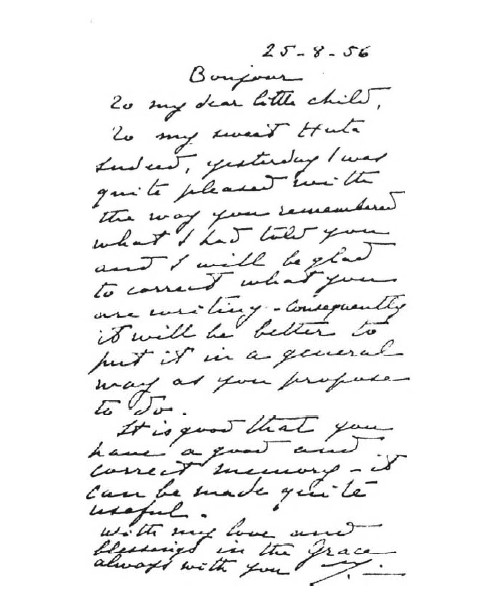 25-8-56
Bonjour
To my dear little child,
To my sweet Huta
Indeed, yesterday I was
quite pleased with
the way you remembered
what I had told you
and I will be glad
to correct what you
are writing - consequently
it will be better to
put it in a general
way as you propose
to do.
It is good that you
have a good and
correct memory - it
can be made quite
useful.
With my love and
blessings in the Grace
always with you